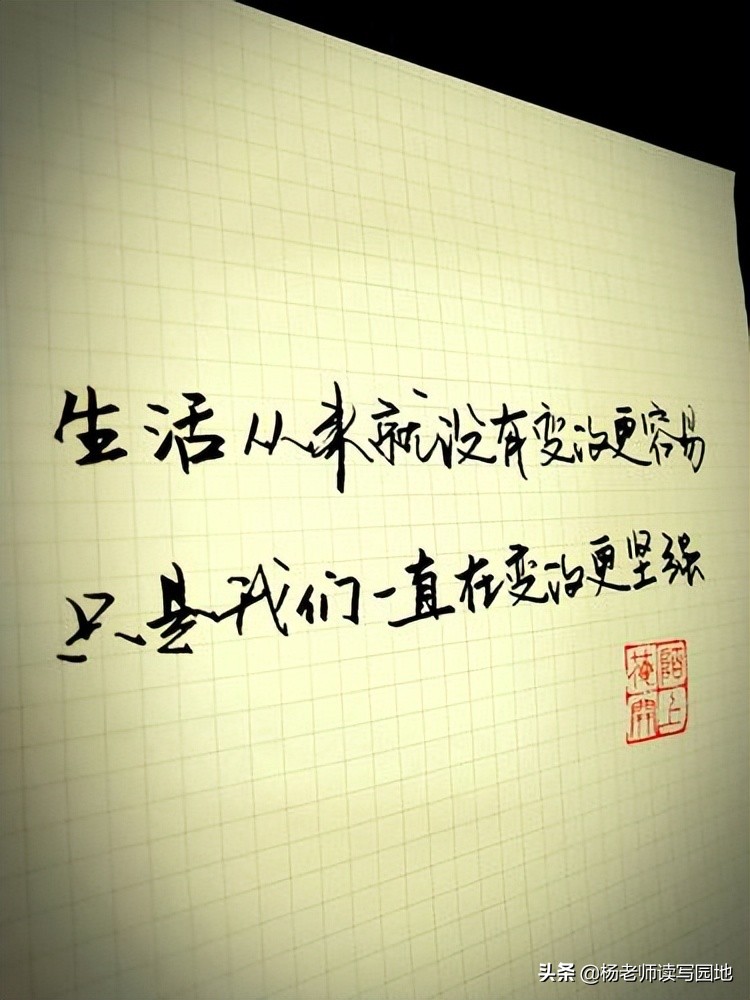 生活从来就没有变得更容易
只是我们一直在变得更坚强
陌上
花開
头条 @杨老师读写园地